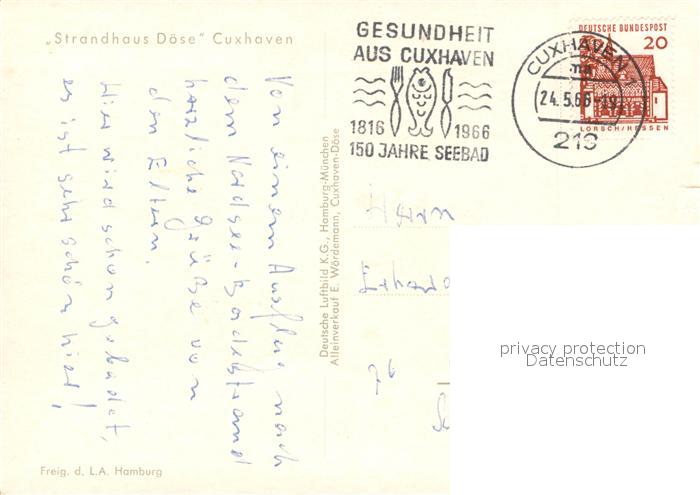 „Strandhaus Döse" Cuxhaven
GESUNDHEIT
AUS CUXHAVEN
1816 1966
150 JAHRE SEEBAD
CUXHAVEN
mm
24.5.66-19
219
DEUTSCHE BUNDESPOST
20
LORSCH/HESSEN
Von einem Ausflug nach
dem Nordsee-Badestrand
herzliche Grüße von
den Eltern.
Hier wird schon gebadet,
es ist sehr schön hier!
Deutsche Luftbild K.G., Hamburg-München
Alleinverkauf E. Wördemann, Cuxhaven-Döse
Herrn
76
privacy protection
Datenschutz
Freig. d. L.A. Hamburg